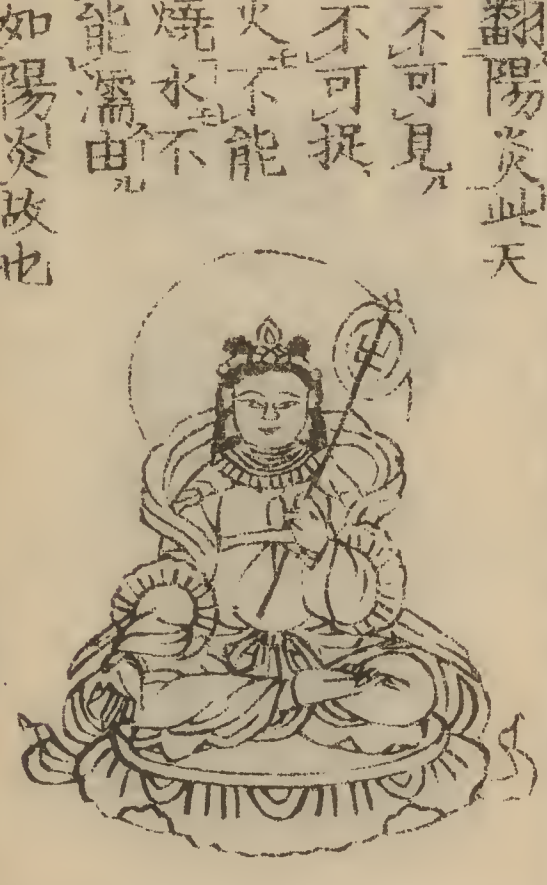 翻陽炎此天
不可見
不可捉
火不能
燒水不
能濡由
如陽炎故也
卍